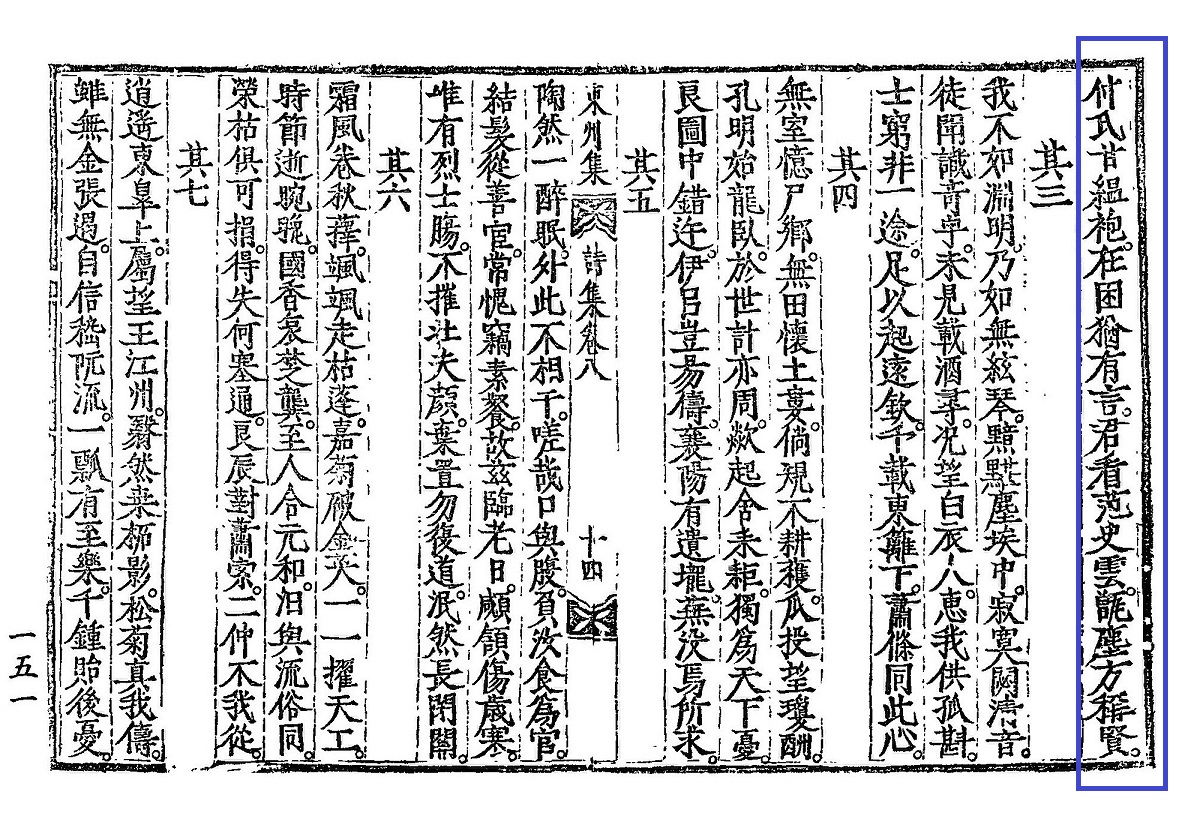 仲氏甘緼袍。在困猶有言。君看范史雲。甑塵方稱賢。
其三
我不如淵明。乃如無絃琴。黯黮塵埃中。寂寞闕清音。
徒聞識奇字。未見載酒尋。況望白衣人。惠我供孤斟。
士窮非一途。足以起遠欽。千載東籬下。蕭條同此心。
其四
無室憶尸鄉。無田懷土婁。倘規不耕穫。瓜投望瓊酬。
孔明始龍臥。於世計亦周。歘起舍耒耟。獨為天下憂。
良圖中錯迕。伊呂豈易儔。襄陽有遺壠。蕪没焉所求。
其五
東州集 詩集卷八 十四
陶然一醉眠。外此不相干。嗟哉口與腹。負汝食為官。
結髮從善宦。常愧竊素餐。故茲臨老日。顑頷傷歲寒。
唯有烈士腸。不摧壯夫顏。棄置勿復道。泯然長閉關。
其六
霜風卷秋蘀。颯颯走枯蓬。嘉菊破金蘂。一一擢天工。
時節逝晼晚。國香哀楚龔。至人合元和。汨與流俗同。
榮枯俱可捐。得失何塞通。良辰對蕭索。二仲不我從。
其七
逍遙東皋上。屬望王江州。翳然来栁影。松菊真我儔。
雖無金張遇。自信嵇阮流。一瓢有至樂。千鍾貽後憂。
一五一